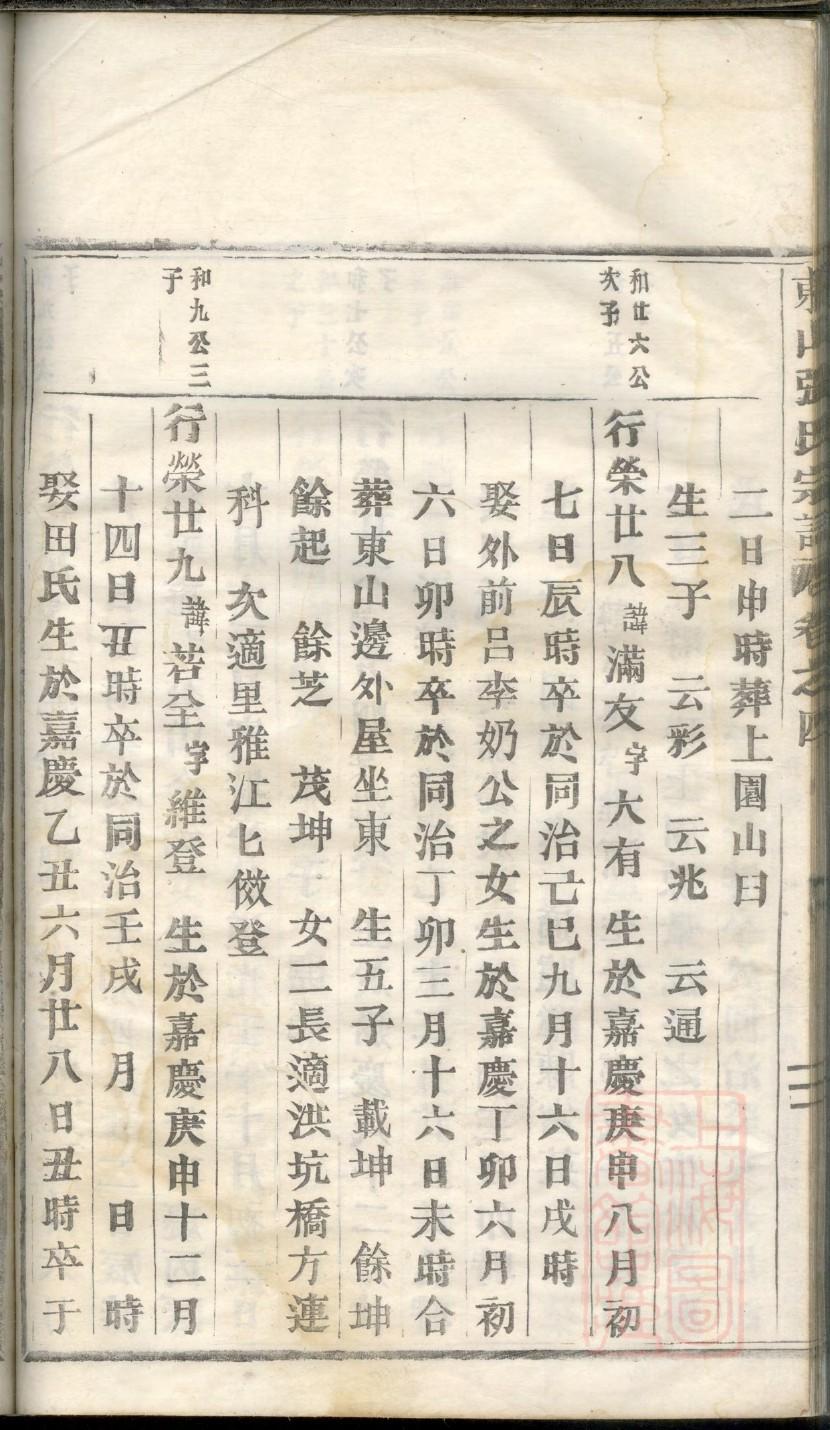 東山張氏宗譜卷之四
二日申時葬上園山曰
生三子　云彩　云兆　云通
和廿六公次子
行榮廿八諱滿友字大有　生於嘉慶庚申八月初
七日辰時卒於同治己巳九月十六日戌時
娶外前呂李奶公之女生於嘉慶丁卯六月初
六日卯時卒於同治丁卯三月十六日未時合
葬東山邊外屋坐東　生五子　載坤　餘坤
餘起　餘芝　茂坤　女二長適洪坑橋方連
科　次適里雅江匕傚登
和九公三子
行榮廿九諱若全字維登　生於嘉慶庚申十二月
十四日丑時卒於同治壬戌　月　日　時
娶田氏生於嘉慶乙丑六月廿八日丑時卒于